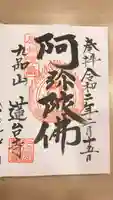 奉拝令和二年二月十五日
阿弥陀佛
九品山
蓮台寺